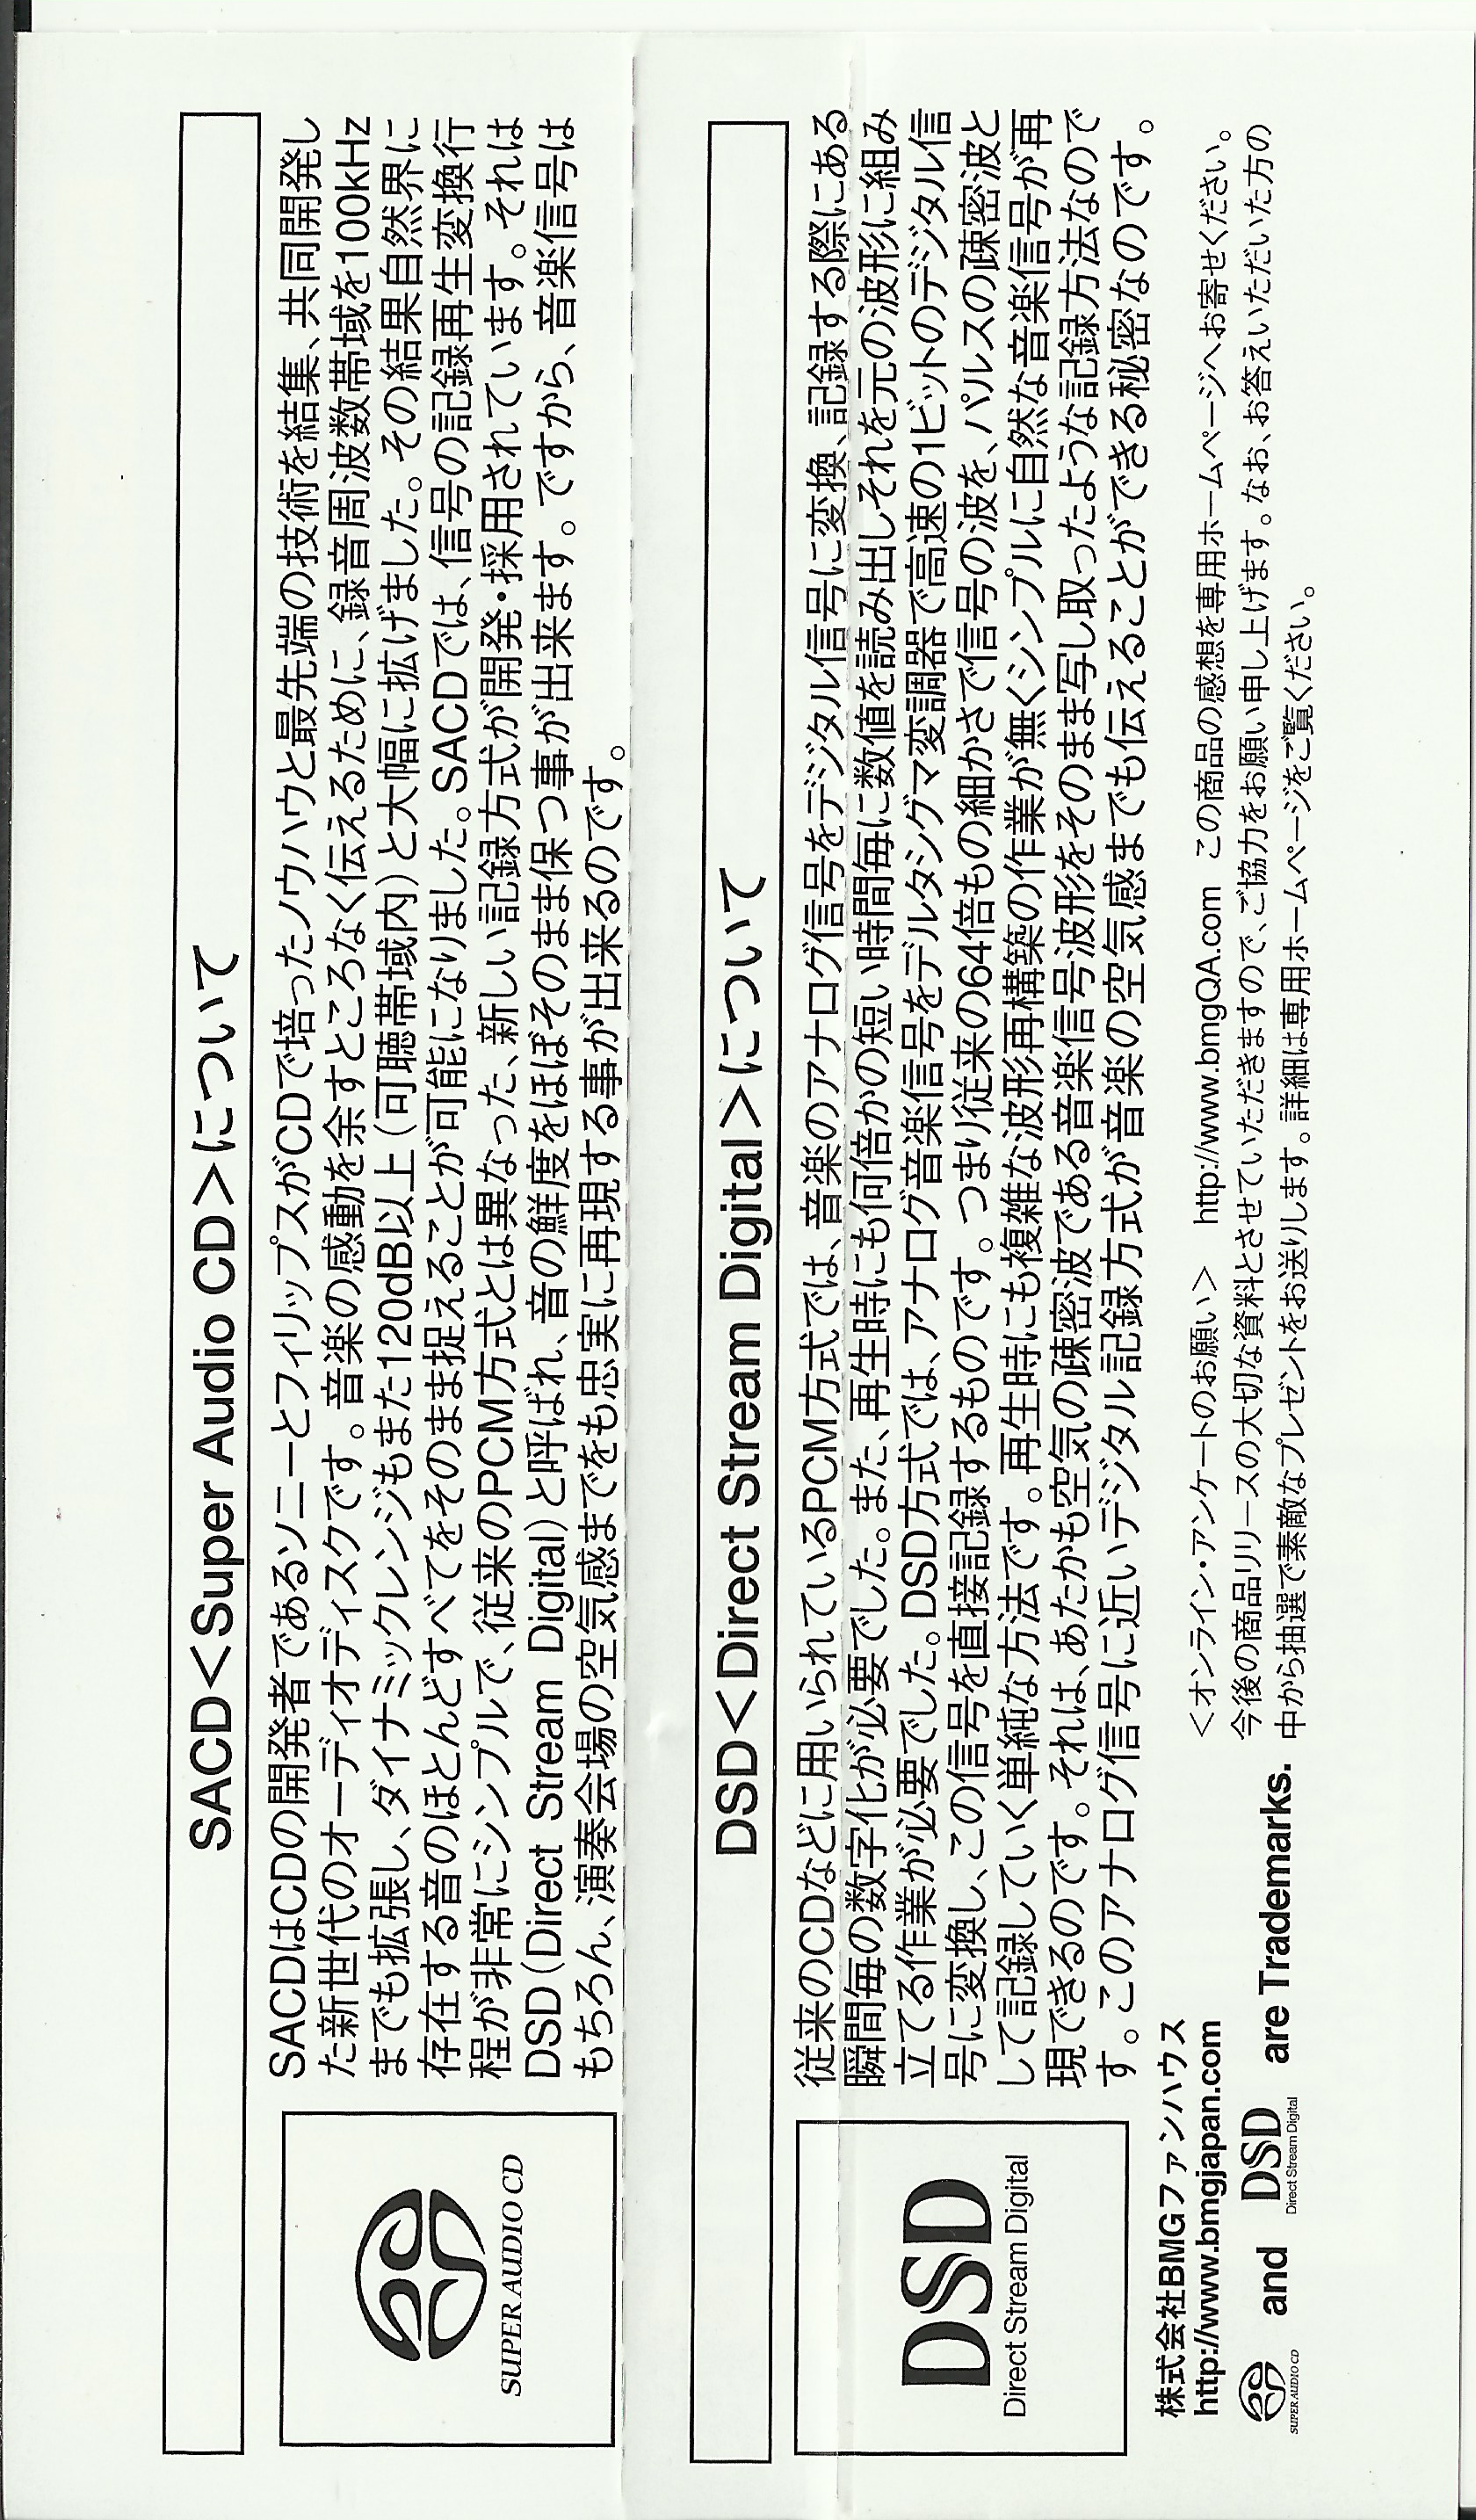 SACD<Super Audio CD>について
SACDはCDの開発者であるソニーとフィリップスがCDで培ったノウハウと最先端の技術を結集、共同開発し
た新世代のオーディオディスクです。音楽の感動を余すところなく伝えるために、録音周波数帯域を100kHz
までも拡張し、ダイナミックレンジもまた120dB以上(可聴帯域内)と大幅に拡げました。その結果自然界に
存在する音のほとんどすべてをそのまま捉えることが可能になりました。SACDでは、信号の記録再生変換行
程が非常にシンプルで、従来のPCM方式とは異なった、新しい記録方式が開発・採用されています。それは
DSD(Direct Stream Digital)と呼ばれ、音の鮮度をほぼそのまま保つ事が出来ます。ですから、音楽信号は
もちろん、演奏会場の空気感までをも忠実に再現する事が出来るのです。
SUPER AUDIO CD
DSD<Direct Stream Digital>について
従来のCDなどに用いられているPCM方式では、音楽のアナログ信号をデジタル信号に変換、記録する際にある
瞬間毎の数字化が必要でした。また、再生時にも何倍かの短い時間毎に数値を読み出しそれを元の波形に組み
立てる作業が必要でした。DSD方式では、アナログ音楽信号をデルタシグマ変調器で高速の1ビットのデジタル信
号に変換し、この信号を直接記録するものです。つまり従来の64倍もの細かさで信号の波を、パルスの疎密波と
して記録していく単純な方法です。再生時にも複雑な波形再構築の作業が無くシンプルに自然な音楽信号が再
現できるのです。それは、あたかも空気の疎密波である音楽信号波形をそのまま写し取ったような記録方法なので
す。このアナログ信号に近いデジタル記録方式が音楽の空気感までも伝えることができる秘密なのです。
DSD
Direct Stream Digital
株式会社BMGファンハウス
http://www.bmgjapan.com
SUPER AUDIO CD and DSD Direct Stream Digital are Trademarks.
<オンライン・アンケートのお願い> http://www.bmgQA.com この商品の感想を専用ホームページへお寄せください。
今後の商品リリースの大切な資料とさせていただきますので、ご協力をお願い申し上げます。なお、お答えいただいた方の
中から抽選で素敵なプレゼントをお送りします。詳細は専用ホームページをご覧ください。